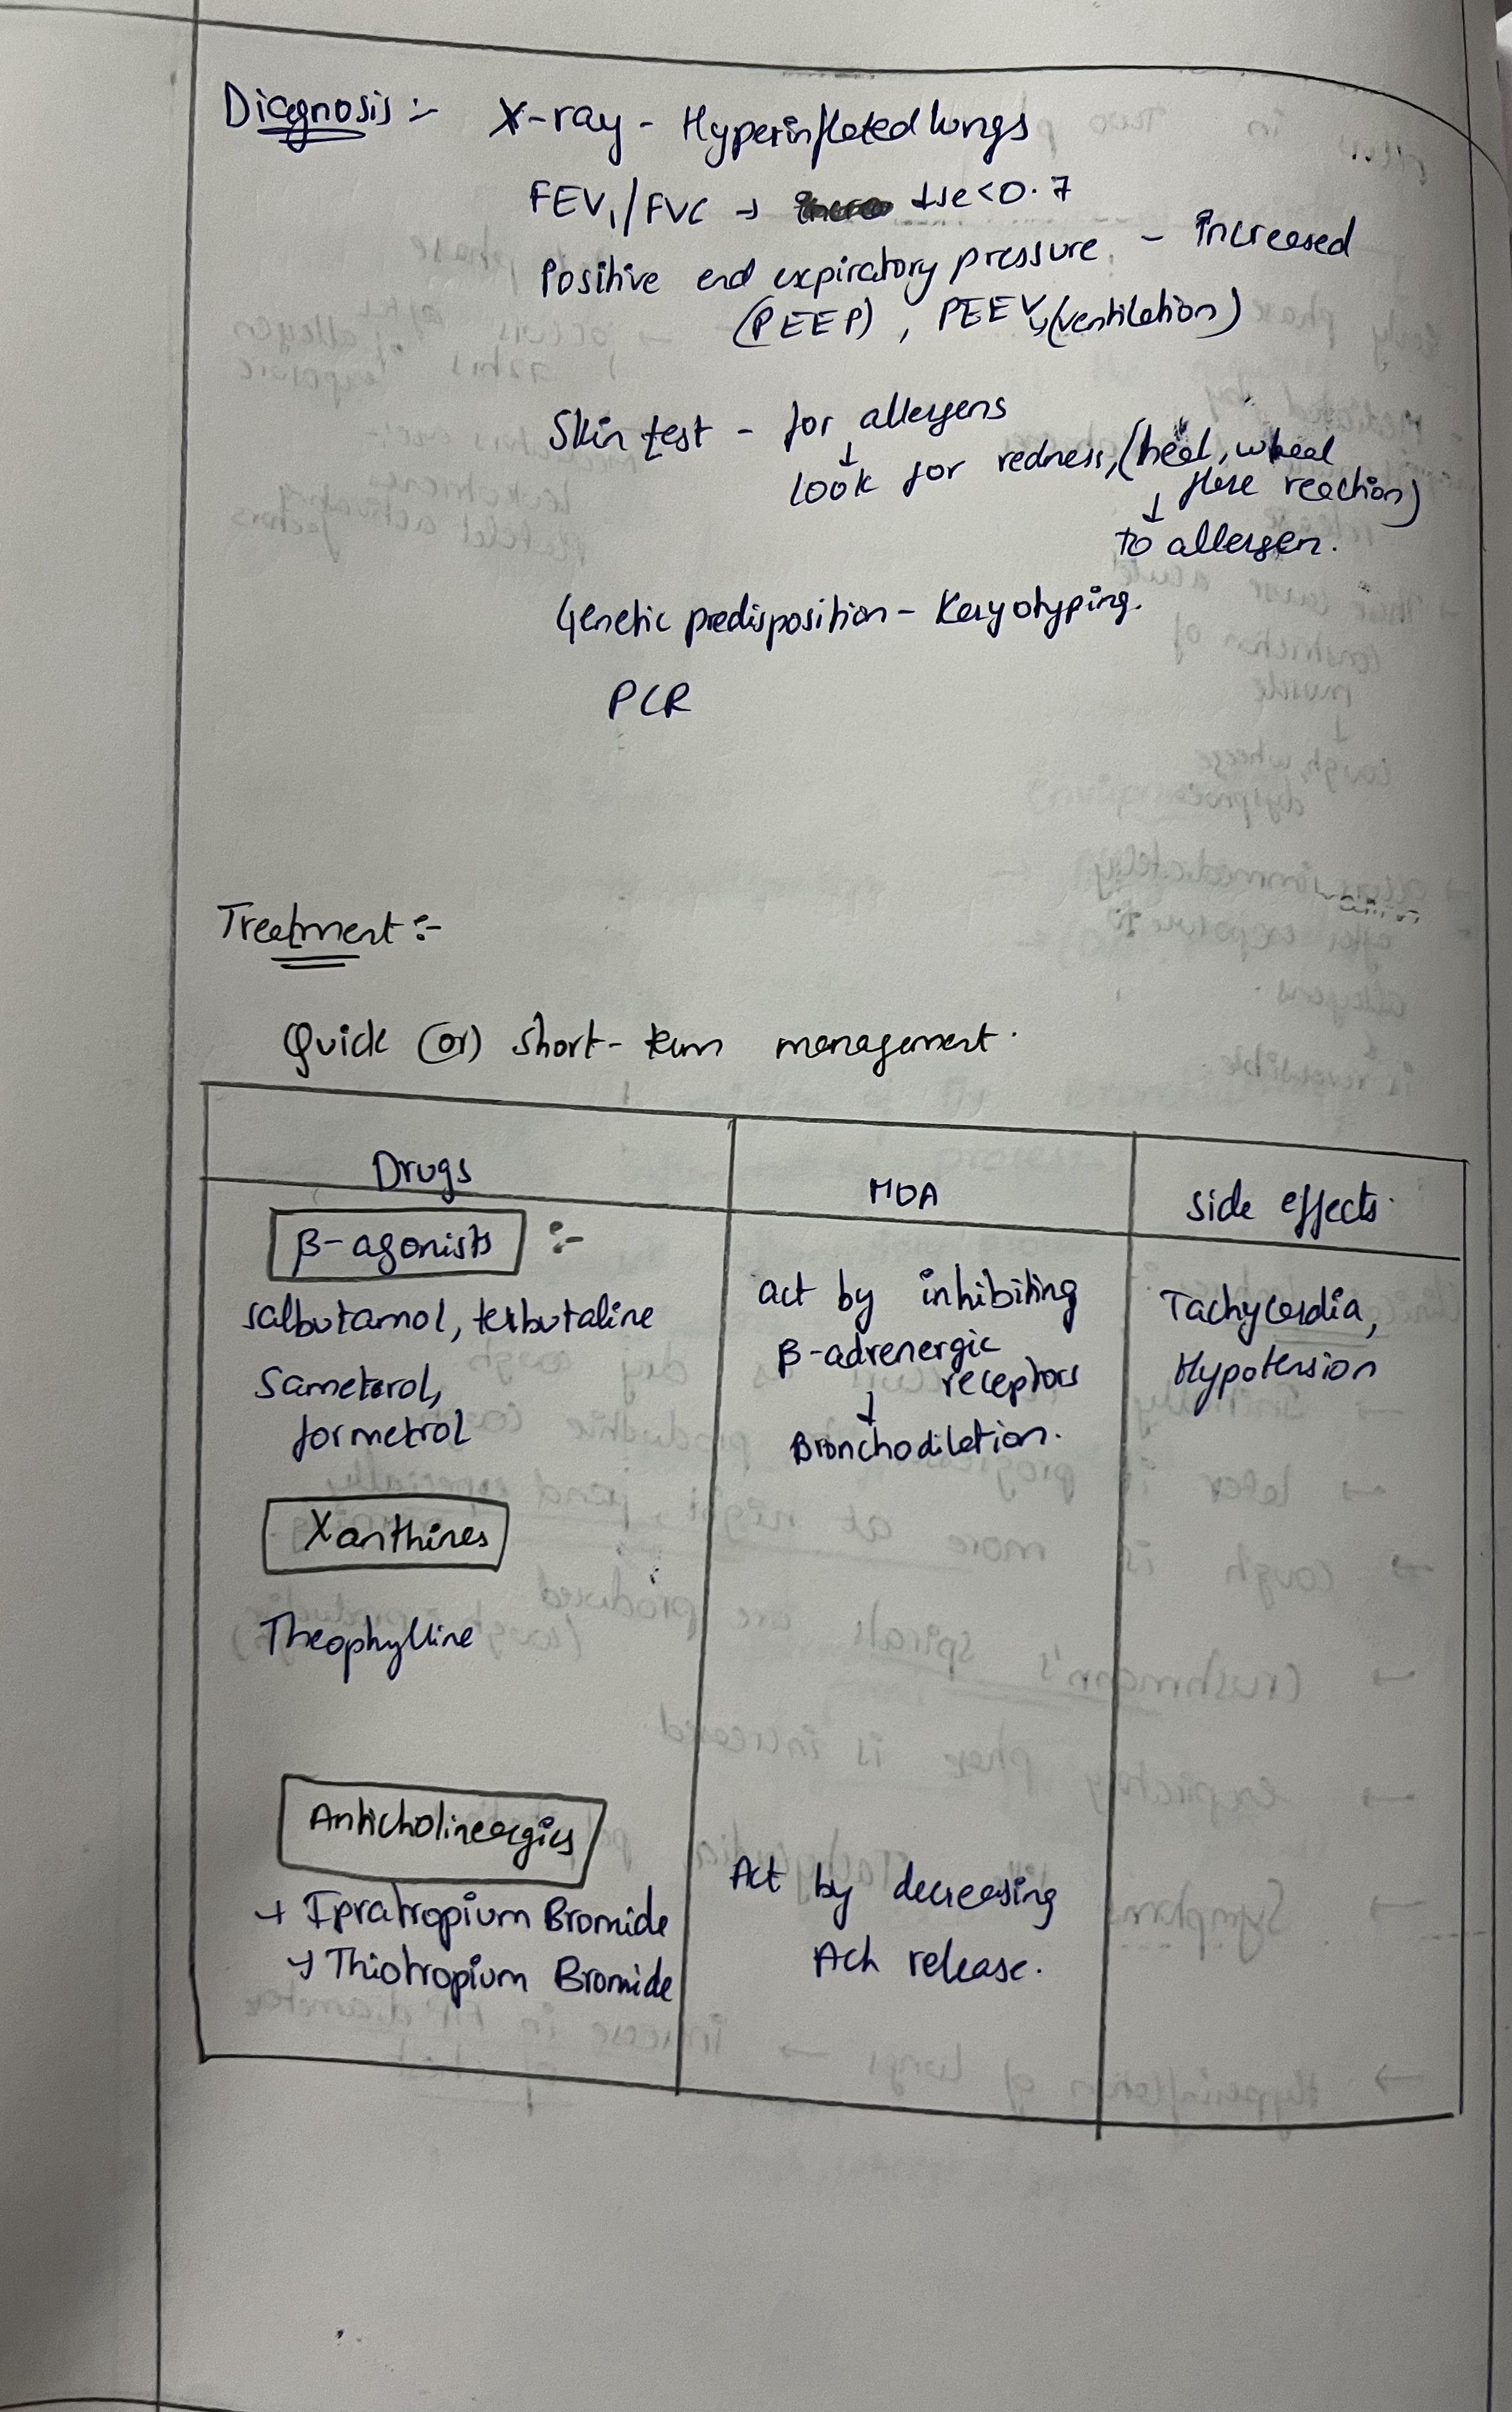 Diagnosis :- X-ray - Hyperinflated lungs
FEV1/FVC → ↓se < 0.7
Positive end expiratory pressure - increased
(PEEP), PEEV, (ventilation)
Skin test - for allergens
↓
look for redness, (heal, wheal
flare reaction)
↓
to allergen.
Genetic predisposition - Karyotyping.
PCR
Treatment :-
Quick (or) short-term management.
Drugs
MOA
Side effects.
β-agonists :-
salbutamol, terbutaline
Sameterol,
formetrol
act by inhibiting
β-adrenergic
receptors
↓
Bronchodilation.
Tachycardia,
Hypotension
Xanthines
Theophylline
Anticholinergics
→ Ipratropium Bromide
→ Thiotropium Bromide
Act by decreasing
Ach release.